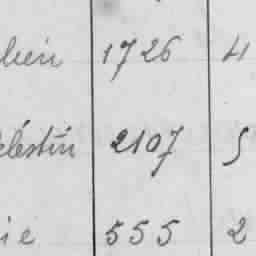 1726 4
élestin 2107 5
ie 555 2